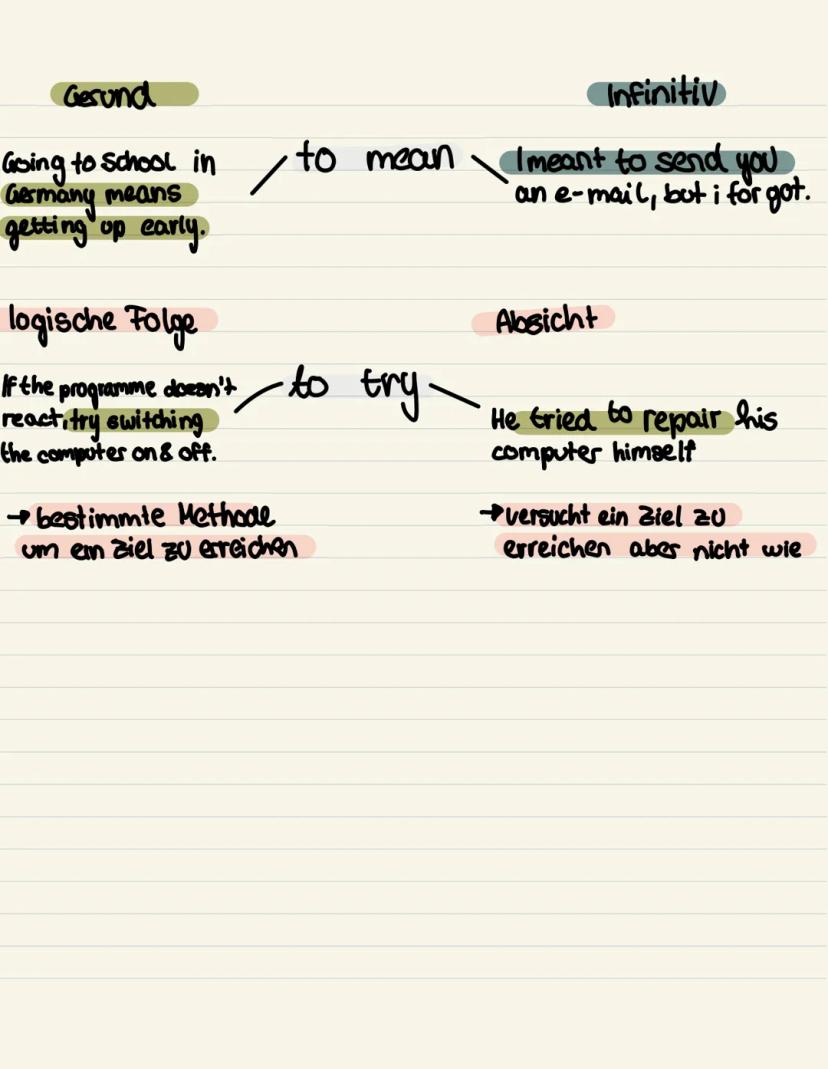 Gerund
Infinitiv
to mean
Going to school in
Germany means
getting up early.
I meant to send you
an e-mail, but i forgot.
logische Folge
Absicht
to try
If the programme doesn't
react, try switching
the computer on & off.
He tried to repair his
computer himself
→ bestimmte Methode
um ein Ziel zu erreichen
→ versucht ein Ziel zu
erreichen aber nicht wie